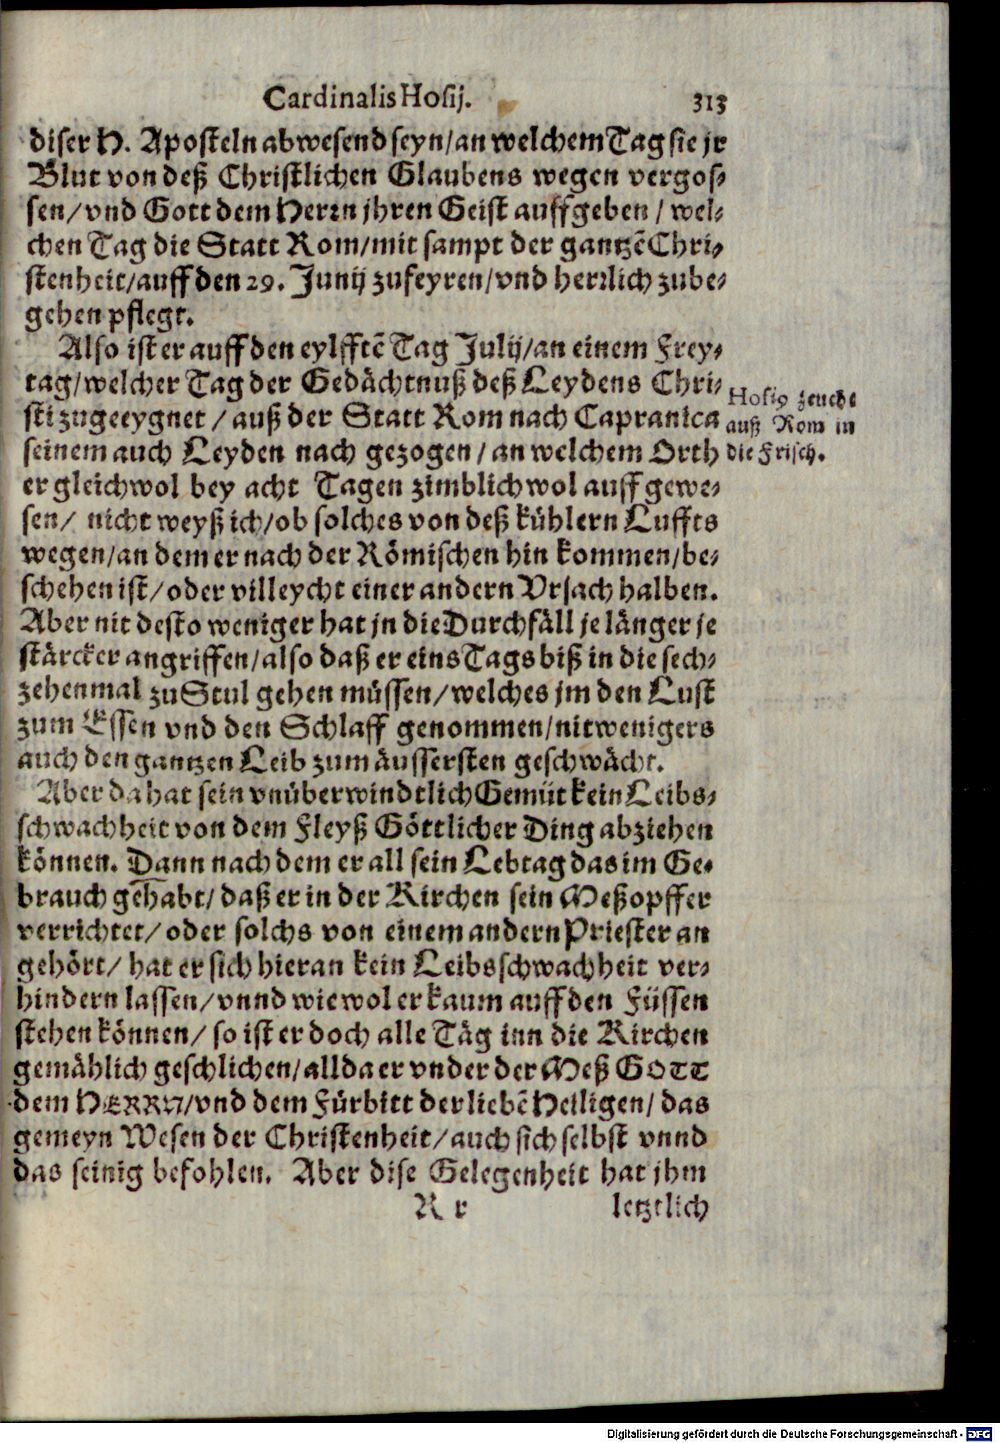 Cardinalis Hosij. 313
diser H. Aposteln abwesend seyn/an welchem Tag sie jr
Blut von deß Christlichen Glaubens wegen vergos-
sen/vnd Gott dem Herrn jhren Geist auffgeben/wel-
chen Tag die Statt Rom/mit sampt der gantzē Chri-
stenheit/auff den 29. Junij zufeyren/vnd herrlich zube-
gehen pflegt.
Also ist er auff den eylfftē Tag Julij/an einem Frey-
tag/welcher Tag der Gedächtnuß deß Leydens Chri-
sti zugeeygnet/auß der Statt Rom nach Capranica
seinem auch Leyden nach gezogen/an welchem Orth
er gleichwol bey acht Tagen zimblich wol auff gewe-
sen/ nicht weyß ich/ob solches von deß kühlern Luffts
wegen/an dem er nach der Römischen hin kommen/be-
schehen ist/oder villeycht einer andern Vrsach halben.
Aber nit desto weniger hat jn die Durchfäll je länger je
stärcker angriffen/also daß er eins Tags biß in die sech-
zehenmal zu Stul gehen müssen/welches jm den Lust
zum Essen vnd den Schlaff genommen/nit wenigers
auch den gantzen Leib zum äussersten geschwächt.
Aber da hat sein vnüberwindtlich Gemüt kein Leibs-
schwachheit von dem Fleyß Göttlicher Ding abziehen
können. Dann nach dem er all sein Lebtag das im Ge-
brauch gehabt/daß er in der Kirchen sein Meßopffer
verrichtet/oder solchs von einem andern Priester an
gehört/hat er sich hieran kein Leibsschwachheit ver-
hindern lassen/vnnd wiewol er kaum auff den Füssen
stehen können/so ist er doch alle Täg inn die Kirchen
gemählich geschlichen/allda er vnder der Meß GOTT
dem HERRN/vnd dem Fürbitt der liebē Heiligen/das
gemeyn Wesen der Christenheit/auch sich selbst vnnd
das seinig befohlen. Aber dise Gelegenheit hat jhm
R r letztlich
Hosiꝰ zeucht
auß Rom in
die Frisch.
Digitalisierung gefördert durch die Deutsche Forschungsgemeinschaft - DFG